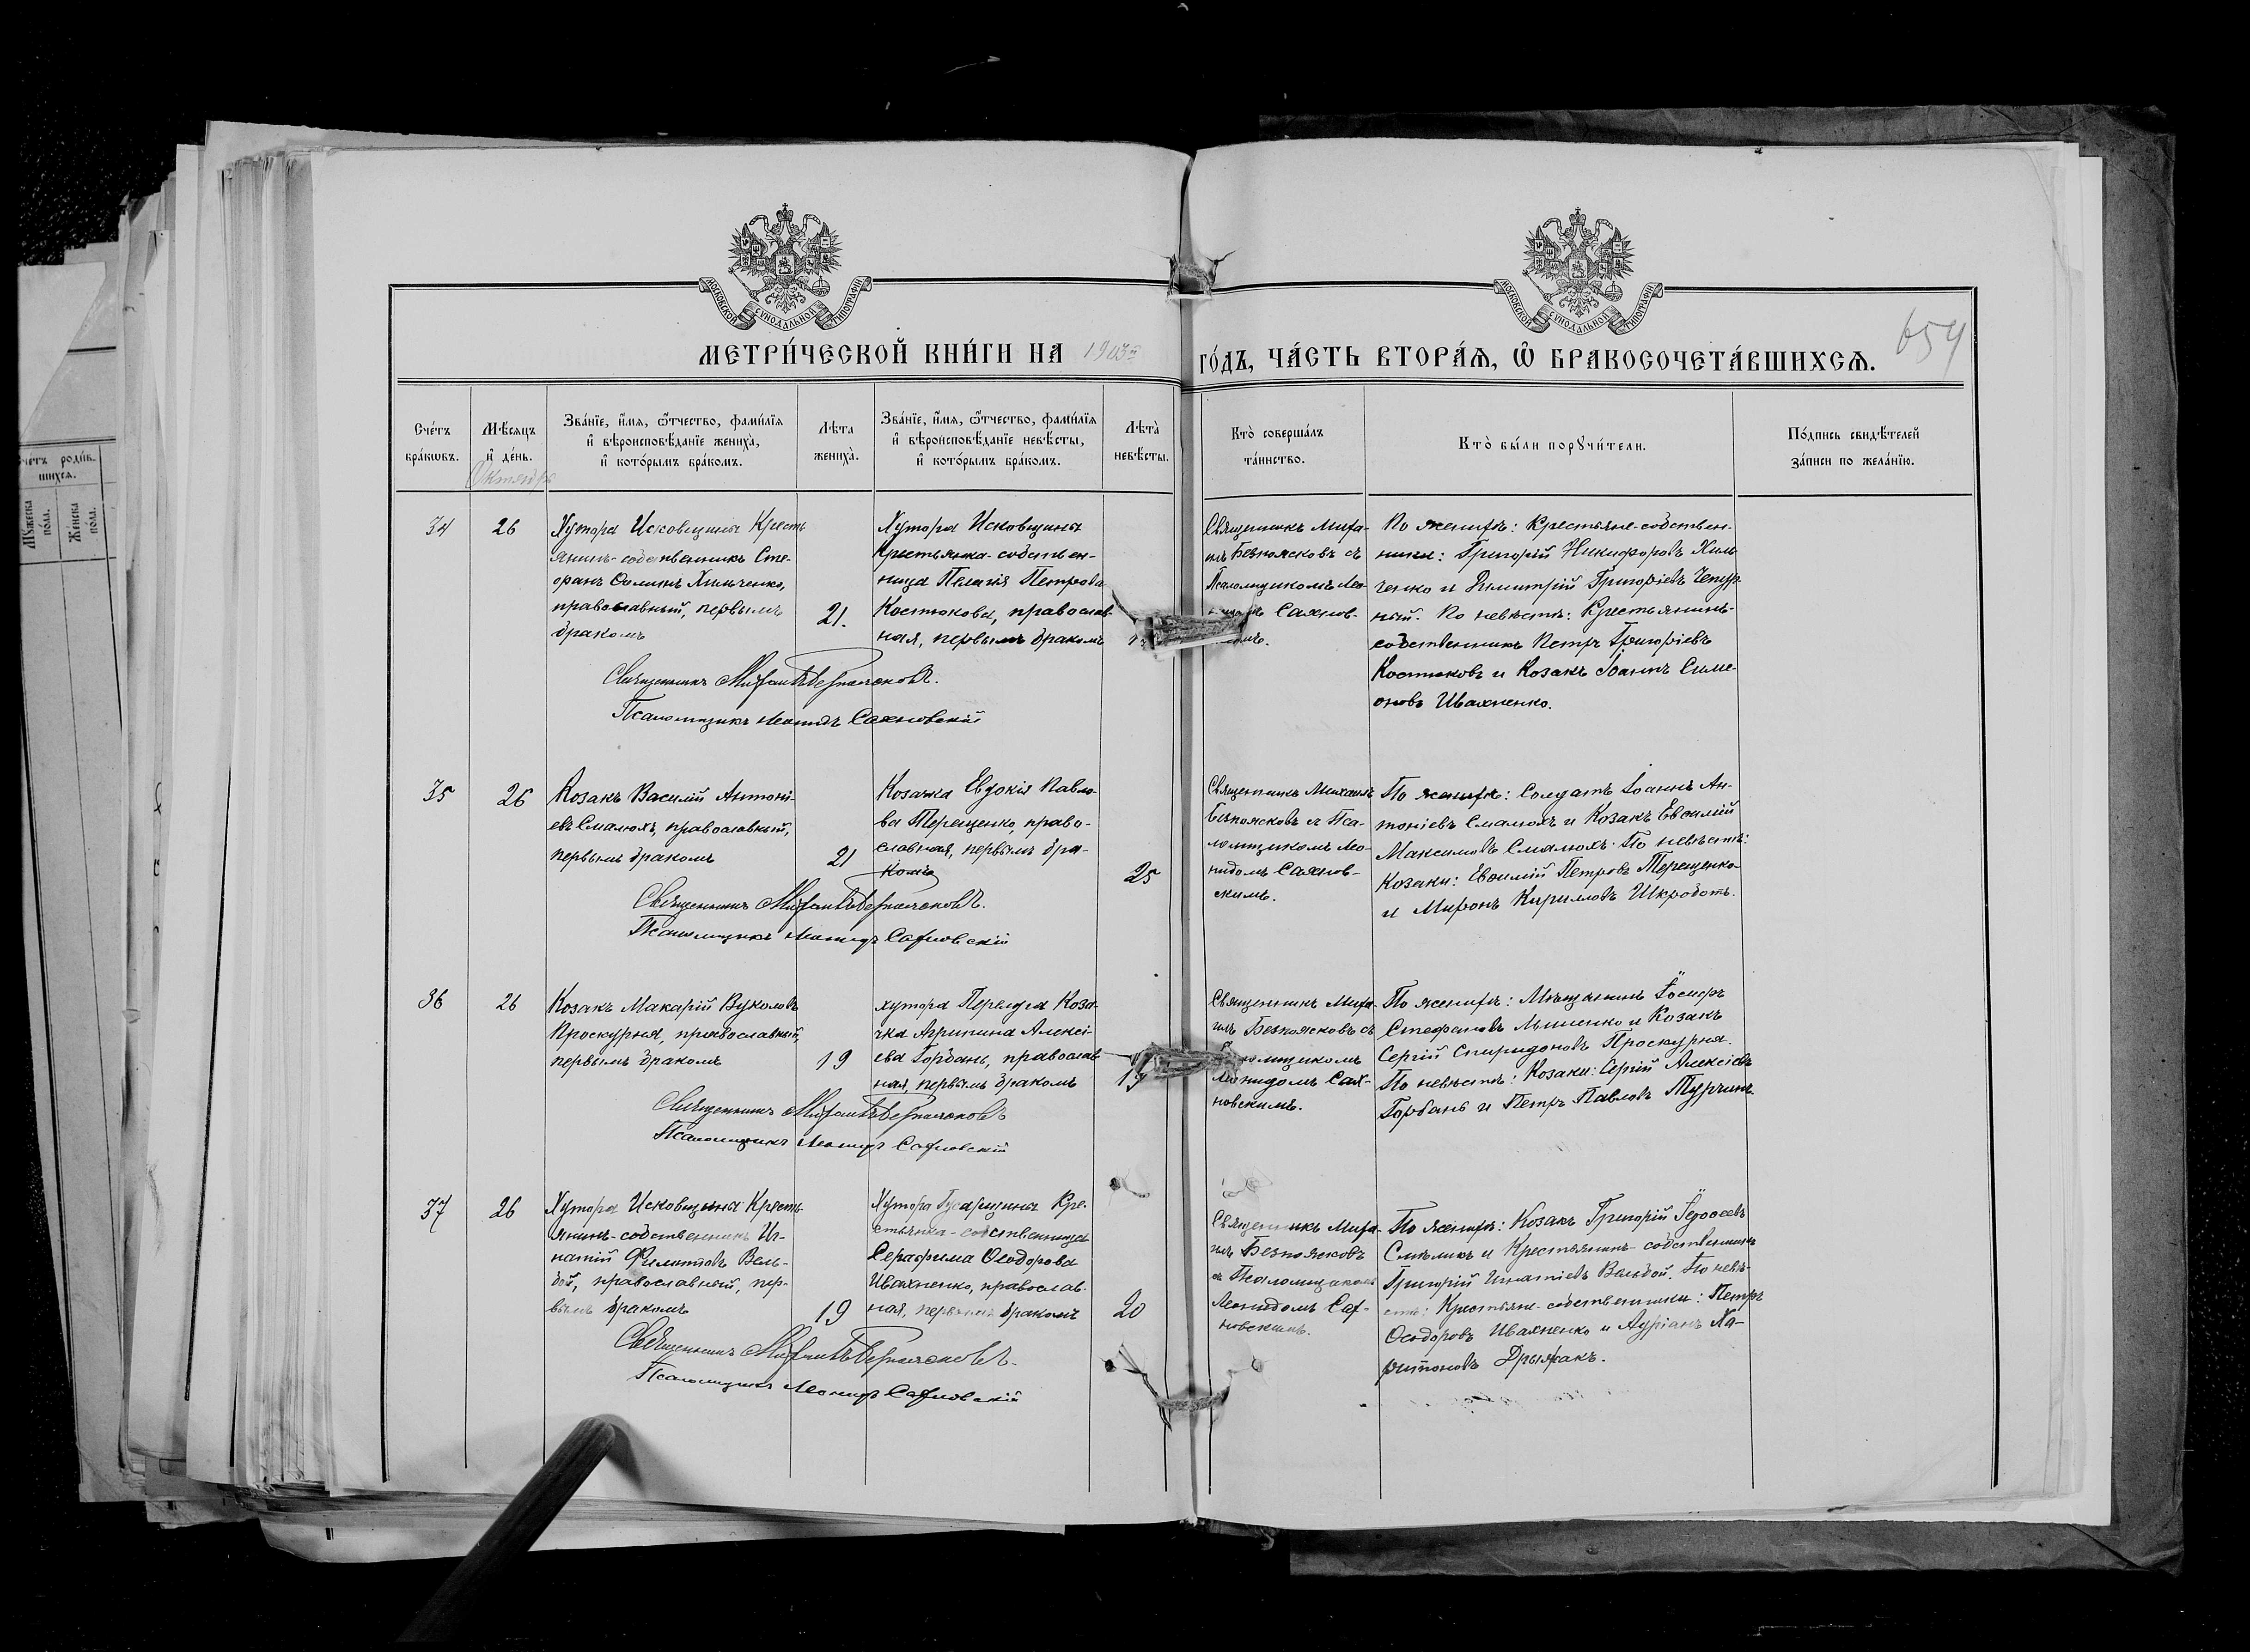 МОСКОВСКОЙ СѴНОДАЛЬНОЙ ТИПОГРАФІИ
МОСКОВСКОЙ СѴНОДАЛЬНОЙ ТИПОГРАФІИ
МЕТРИ́ЧЕСКОЙ КНИ́ГИ НА 1903й
ГО́ДЪ, ЧА́СТЬ ВТОРА́Ѧ, Ѽ БРАКОСОЧЕТА́ВШИХСѦ.
654
Сче́тъ
бра́кѡвъ.
Мѣ́сяцъ
и҆ де́нь.
Октябрь
Зва́нїе, и҆́мѧ, ѻ҆́тчество, фами́лїѧ
и҆ вѣроисповѣ́данїе жениха̀,
и҆ кото́рымъ бра́комъ.
Лѣ́та
жениха̀.
Зва́нїе, и҆́мѧ, ѻ҆́тчество, фами́лїѧ
и҆ вѣроисповѣ́данїе невѣ́сты,
и҆ кото́рымъ бра́комъ.
Лѣта̀
невѣ́сты.
Кто̀ соверша́лъ
та́инство.
Кто̀ бы́ли порꙋчи́тели.
По́дпись свидѣ́телей
за́писи по жела́нїю.
34
26
Хутора Исковщины Кресть
янинъ-собственникъ Сте-
фанъ Хильченко,
православный, первымъ
бракомъ
21.
Хутора Исковщины
Крестьянка-собствен-
ница Пелагія Петрова
Костюкова, православ-
ная, первымъ бракомъ
Священникъ Миха-
илъ Безпоясковъ съ
Псаломщикомъ Лео-
Сахнов-
По женихѣ: Крестьяне-собствен-
ники: Григорій Никифоровъ Хиль
ченко и Димитрій Григоріевъ Чепур
ный. По невѣстѣ: Крестьянинъ-
собственникъ Петръ Григоріевъ
Костюковъ и Козакъ Іоаннъ Симе-
оновъ Ивахненко.
Священникъ Михаилъ Безпоясковъ.
Псаломщикъ Леонидъ Сахновскій
35
26
Козакъ Василій Антоні-
евъ Смалюхъ, православный,
первымъ бракомъ
21
Козачка Евдокія Павло-
ва Терещенко, право-
славная, первымъ бра-
комъ
25
Священникъ Михаилъ
Безпоясковъ съ Пса-
ломщикомъ Лео-
нидомъ Сахнов-
скимъ.
По женихѣ: Солдатъ Іоаннъ Ан-
тоніевъ Смалюхъ и Козакъ Евѳимій
Максимовъ Смалюхъ. По невѣстѣ:
Козаки: Евѳимій Петровъ Терещенко
и Миронъ Кирилловъ Шкроботъ.
Священникъ Михаилъ Безпоясковъ.
Псаломщикъ Леонидъ Сахновскій
36
26
Козакъ Макарій Вуколовъ
Проскурня, православный,
первымъ бракомъ
19
хутора Перевода Коза-
чка Агрипина Алексі-
ева Горбань, православ-
ная, первымъ бракомъ
19
Священникъ Миха-
илъ Безпоясковъ съ
Леонидомъ Сах-
новскимъ.
По женихѣ: Мѣщанинъ Іосифъ
Стефановъ Лысенко и Козакъ
Сергій Спиридоновъ Проскурня.
По невѣстѣ: Козаки: Сергій Алексіевъ
Горбань и Петръ Павловъ Турчинъ.
Священникъ Михаилъ Безпоясковъ
Псаломщикъ Леонидъ Сахновскій
37
26
Хутора Исковщины Кресть
янинъ-собственникъ Иг-
натій Филиповъ Вель-
бой, православный, пер-
вымъ бракомъ
19
Хутора Гусарщины Кре-
стьянка-собственница
Серафима Ѳеодорова
Ивахненко, православ-
ная, первымъ бракомъ
20
Священникъ Миха-
илъ Безпоясковъ
съ Псаломщикомъ
Леонидомъ Сах-
новскимъ.
По женихѣ: Козакъ Григорій Ѳедосеевъ
Смѣликъ и Крестьянинъ-собственникъ
Григорій Игнатіевъ Вельбой. По невѣ-
стѣ: Крестьяне-собственники: Петръ
Ѳеодоровъ Ивахненко и Адріанъ Ха-
ритоновъ Дрыжакъ.
Священникъ Михаилъ Безпоясковъ.
Псаломщикъ Леонидъ Сахновскій